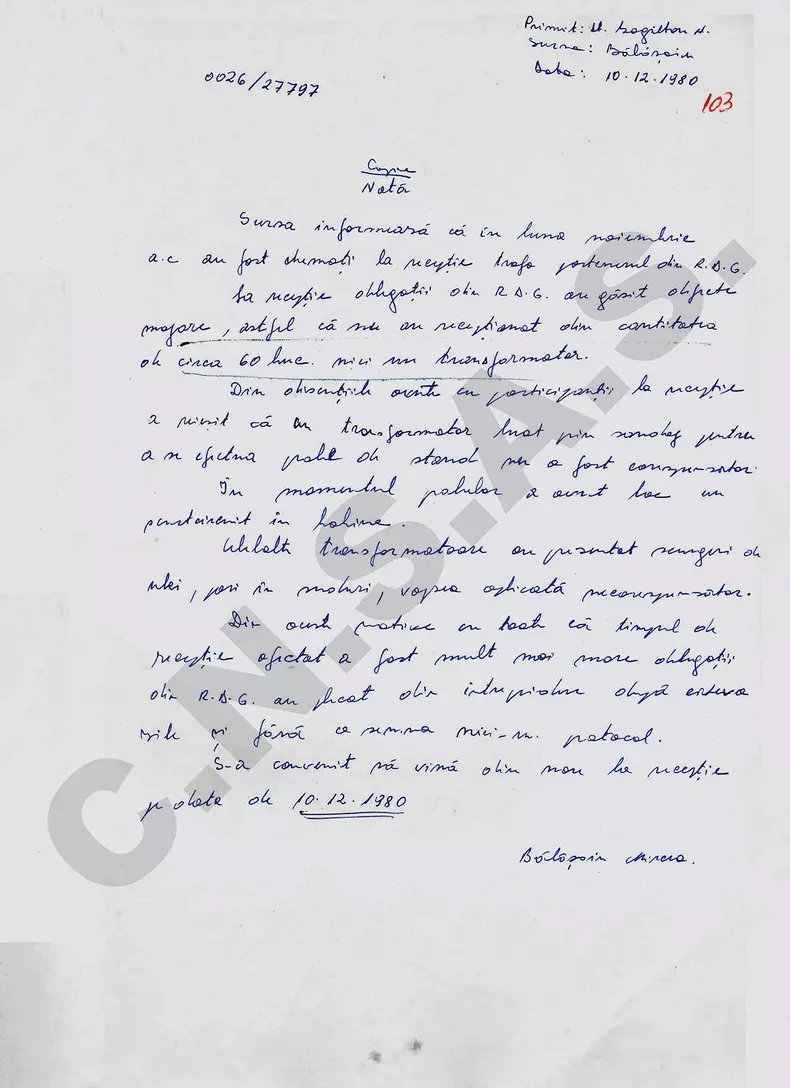 Primit: lt.
Sursa: Bălășoiu
Data: 10.12.1980
0026/27797
103
Copie
Notă
Sursa informează că în luna noiembrie
a.c au fost chemați la recepție trafo partenerul din R.D.G.
La recepție delegații din R.D.G. au găsit defecte
majore, astfel că nu au recepționat din cantitatea
de circa 60 buc. nici un transformator.
Din discuțiile avute cu participanții la recepție
a reieșit că un transformator luat prin sondaj pentru
a se efectua probe de stand nu a fost corespunzător.
În momentul probelor a avut loc un
în bobine.
Celelalte transformatoare au prezentat scurgeri de
ulei, pori în suduri, vopsea aplicată necorespunzător.
Din aceste motive cu toate că timpul de
recepție afectat a fost mult mai mare delegații
din R.D.G. au plecat din întreprindere după câteva
zile și fără ca semna nici-un protocol.
S-a convenit să vină din nou la recepție
pe data de 10.12.1980
Bălășoiu Mircea.
C.N.S.A.S.